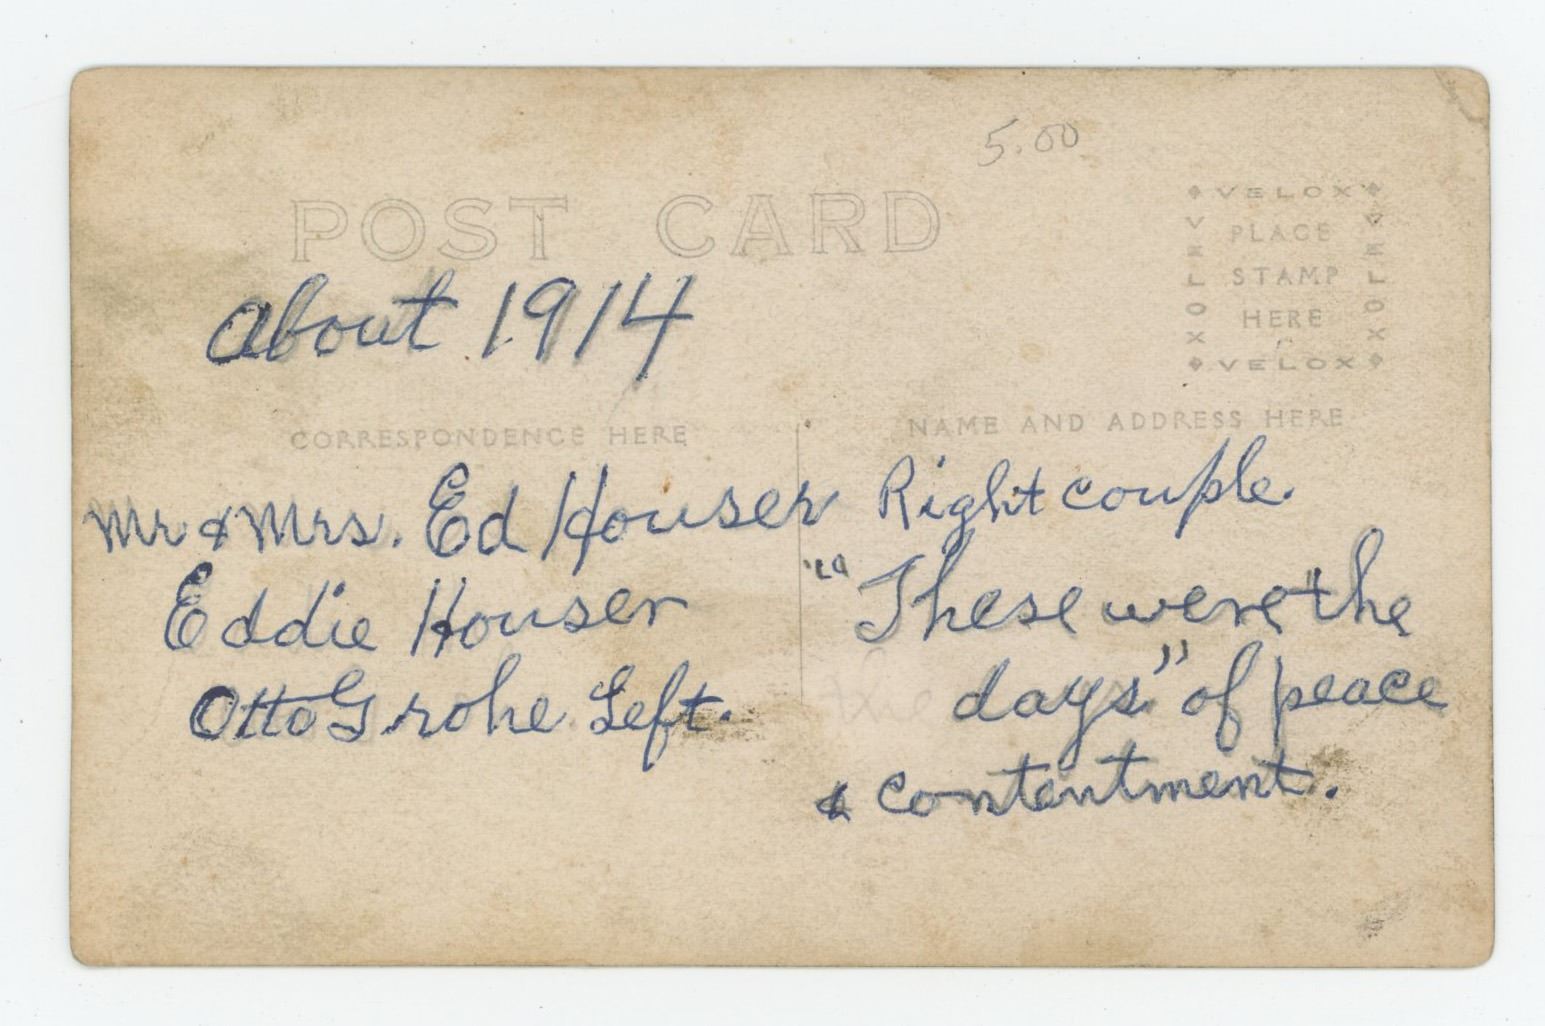 5.00
POST CARD
VELOX
VELOX
PLACE
STAMP
HERE
VELOX
VELOX
about 1914
CORRESPONDENCE HERE
NAME AND ADDRESS HERE
Mr & Mrs. Ed Houser Right couple.
Eddie Houser
Otto Grohe Left.
"These were the
days" of peace
& contentment.